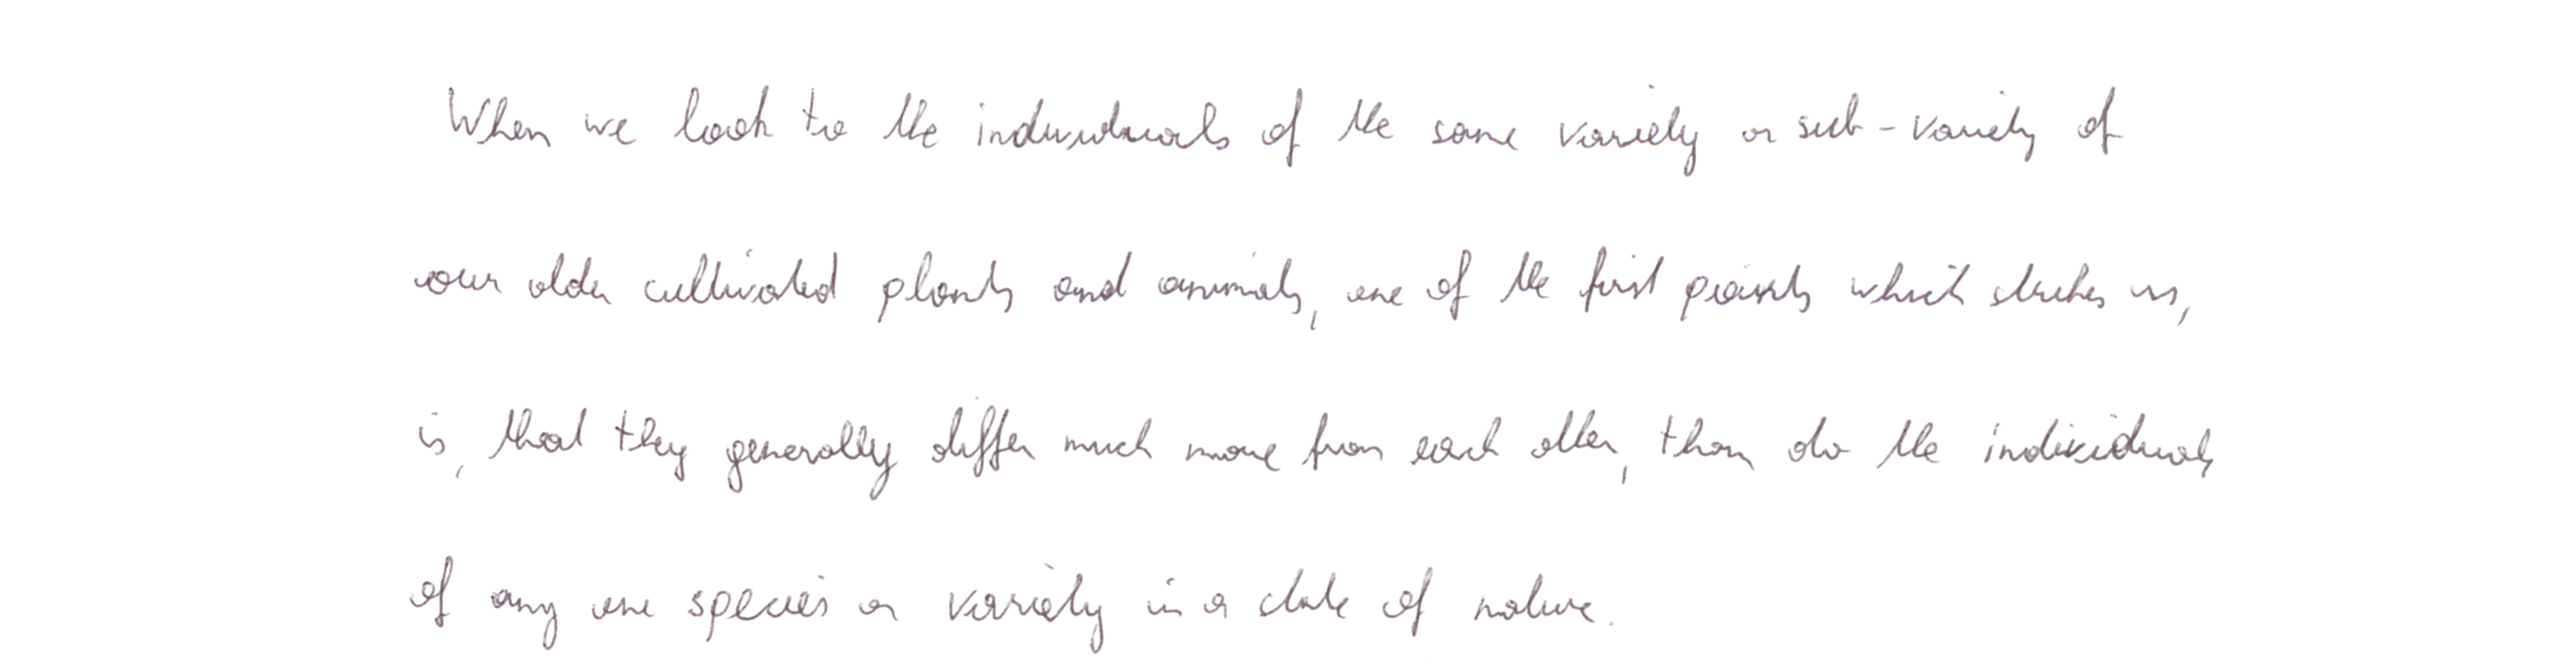 When we look to the individuals of the same variety or sub-variety of
our older cultivated plants and animals, one of the first points which strikes us,
is, that they generally differ much more from each other, than do the individuals
of any one species or variety in a state of nature.